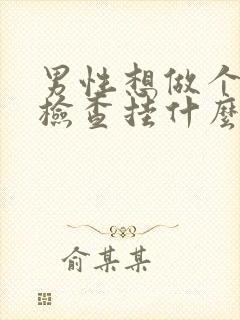 男性想做个
檢查挂什麼
俞某某